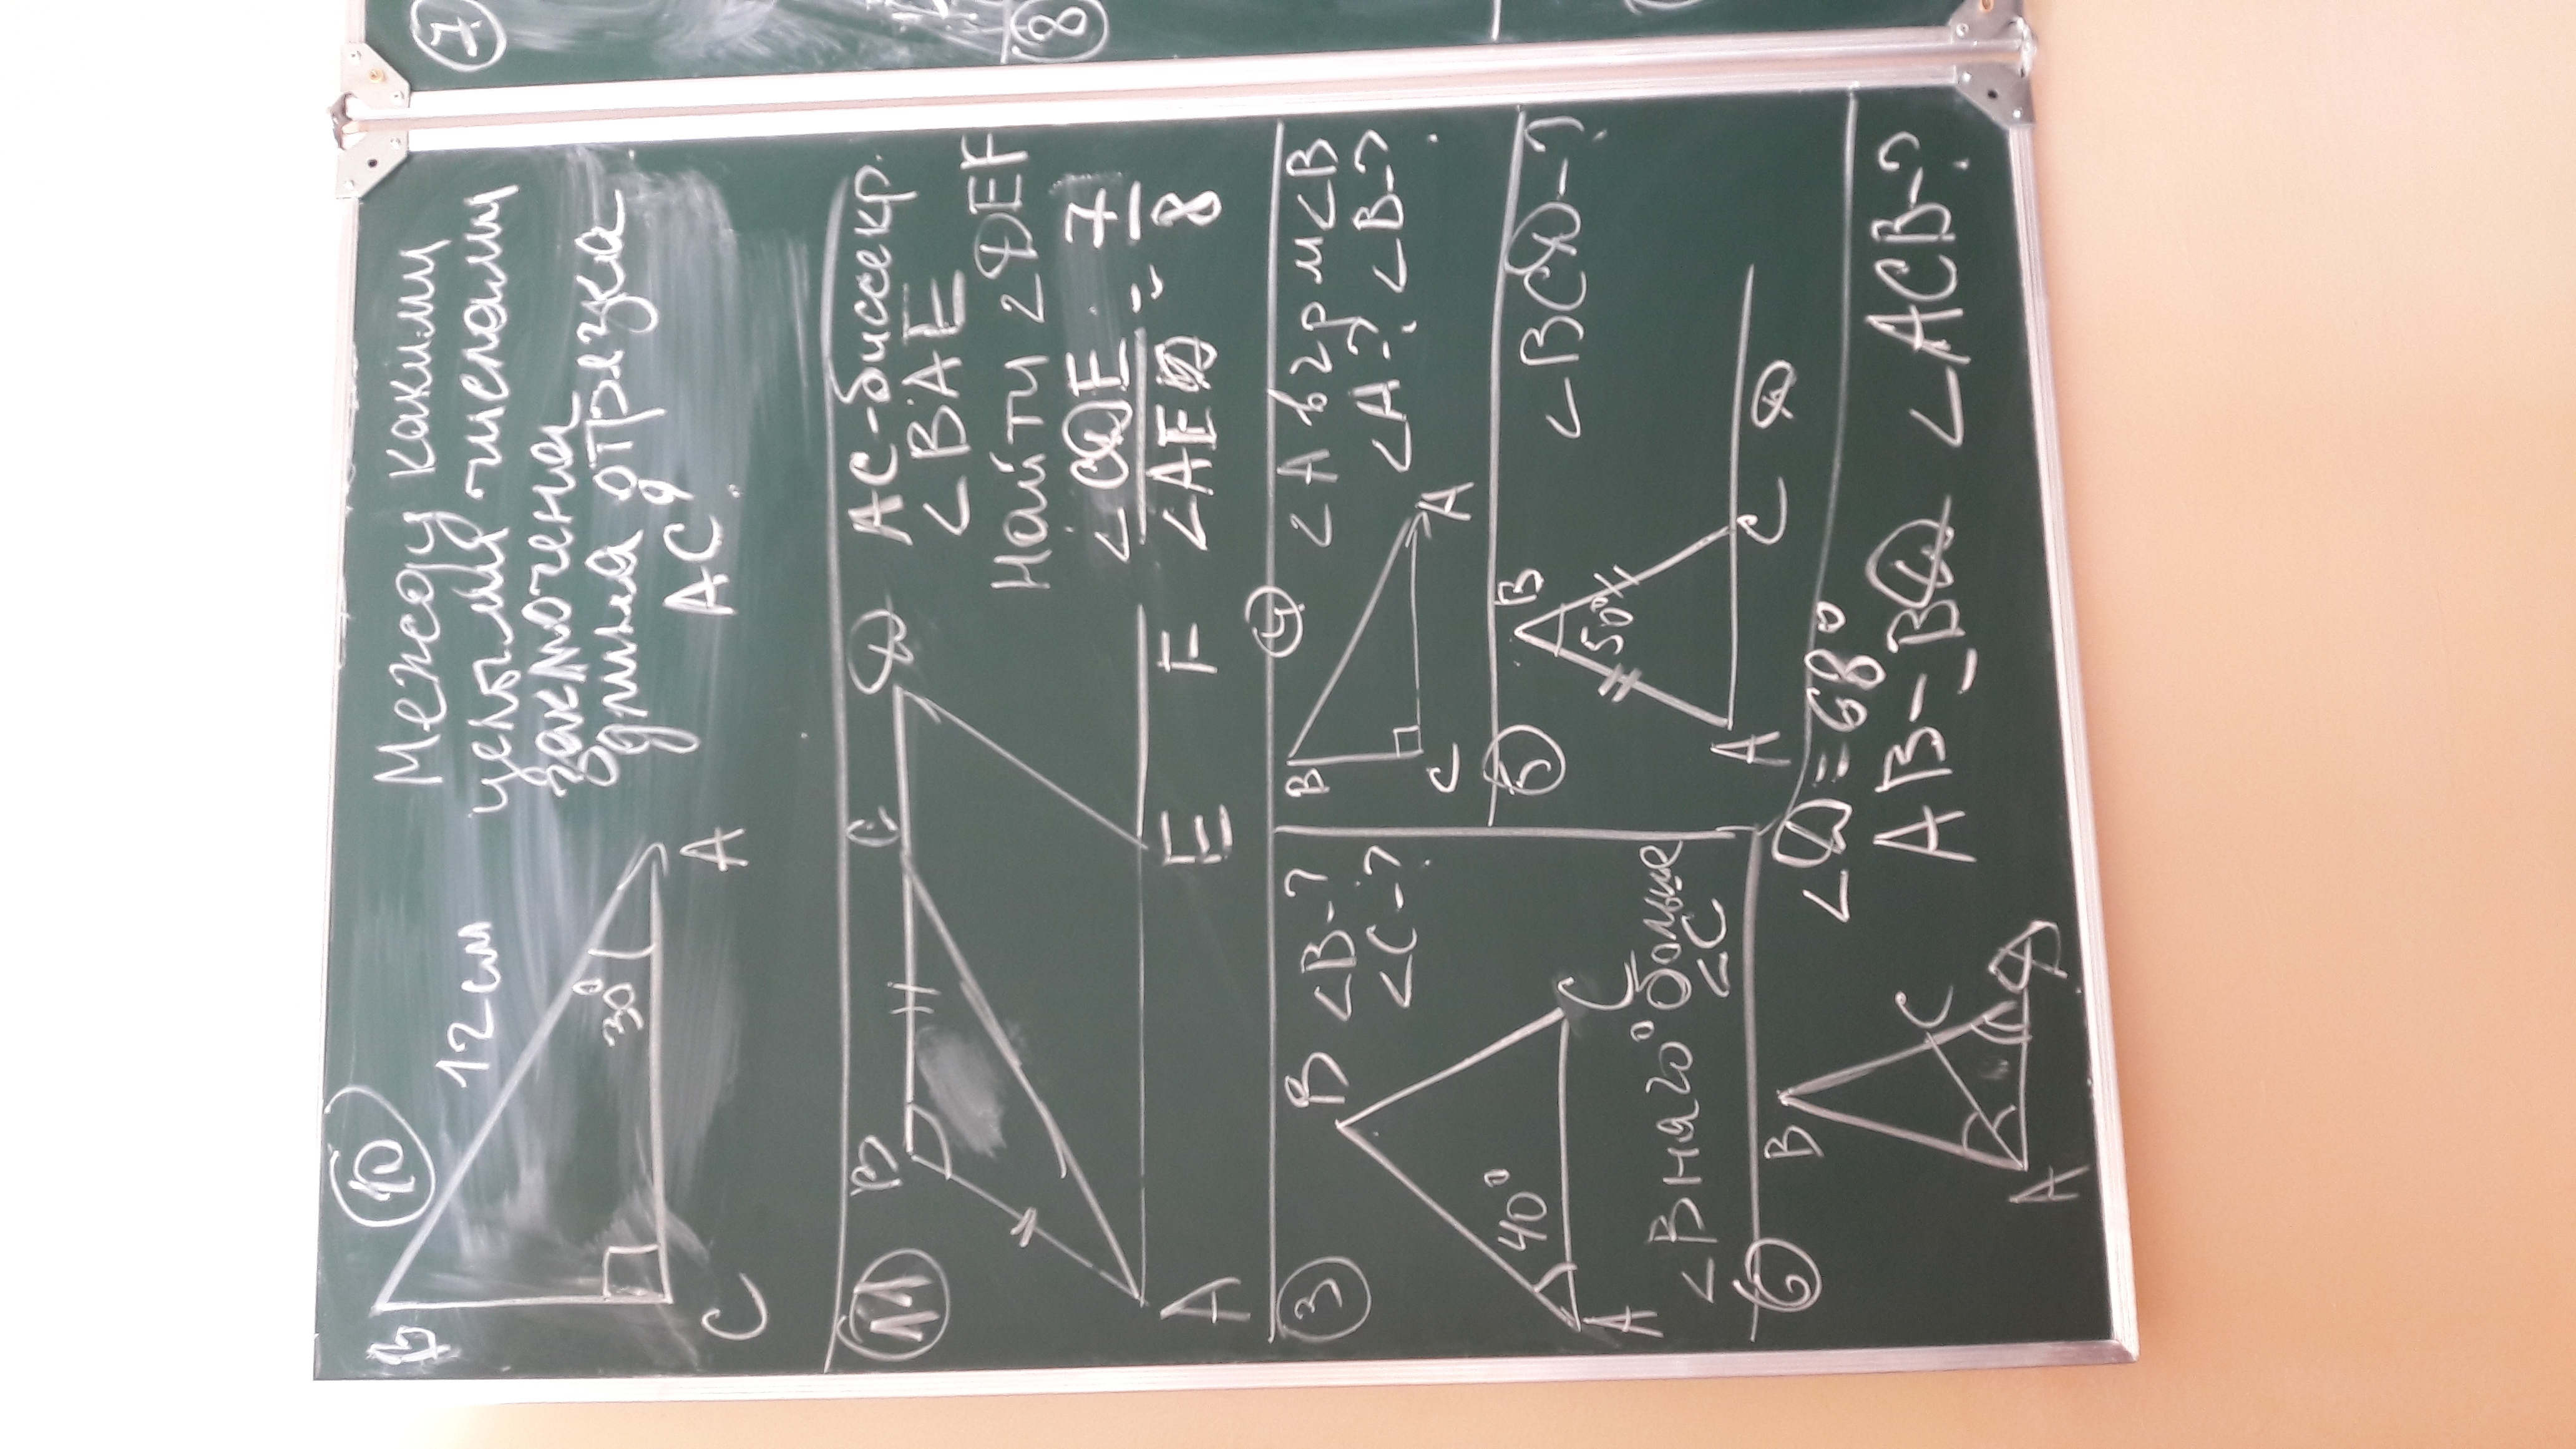 7
8
10
12 см
B
30°
C
A
Между какими
целыми числами
заключена
длина отрезка
AC?
11
B
C
D
A
E
F
AC-биссектр.
∠BAE
Найти ∠DEF
∠CDE : 7
∠AED 8
3
B
∠B-?
∠C-?
40°
A
C
∠B на 20° больше
∠C
4
∠A в 2 р м ∠B
∠A-? ∠B-?
B
C
A
5
B
50°
∠BCD-?
A
C
D
6
B
C
A
D
∠D=68°
AB=BD
∠ACB-?